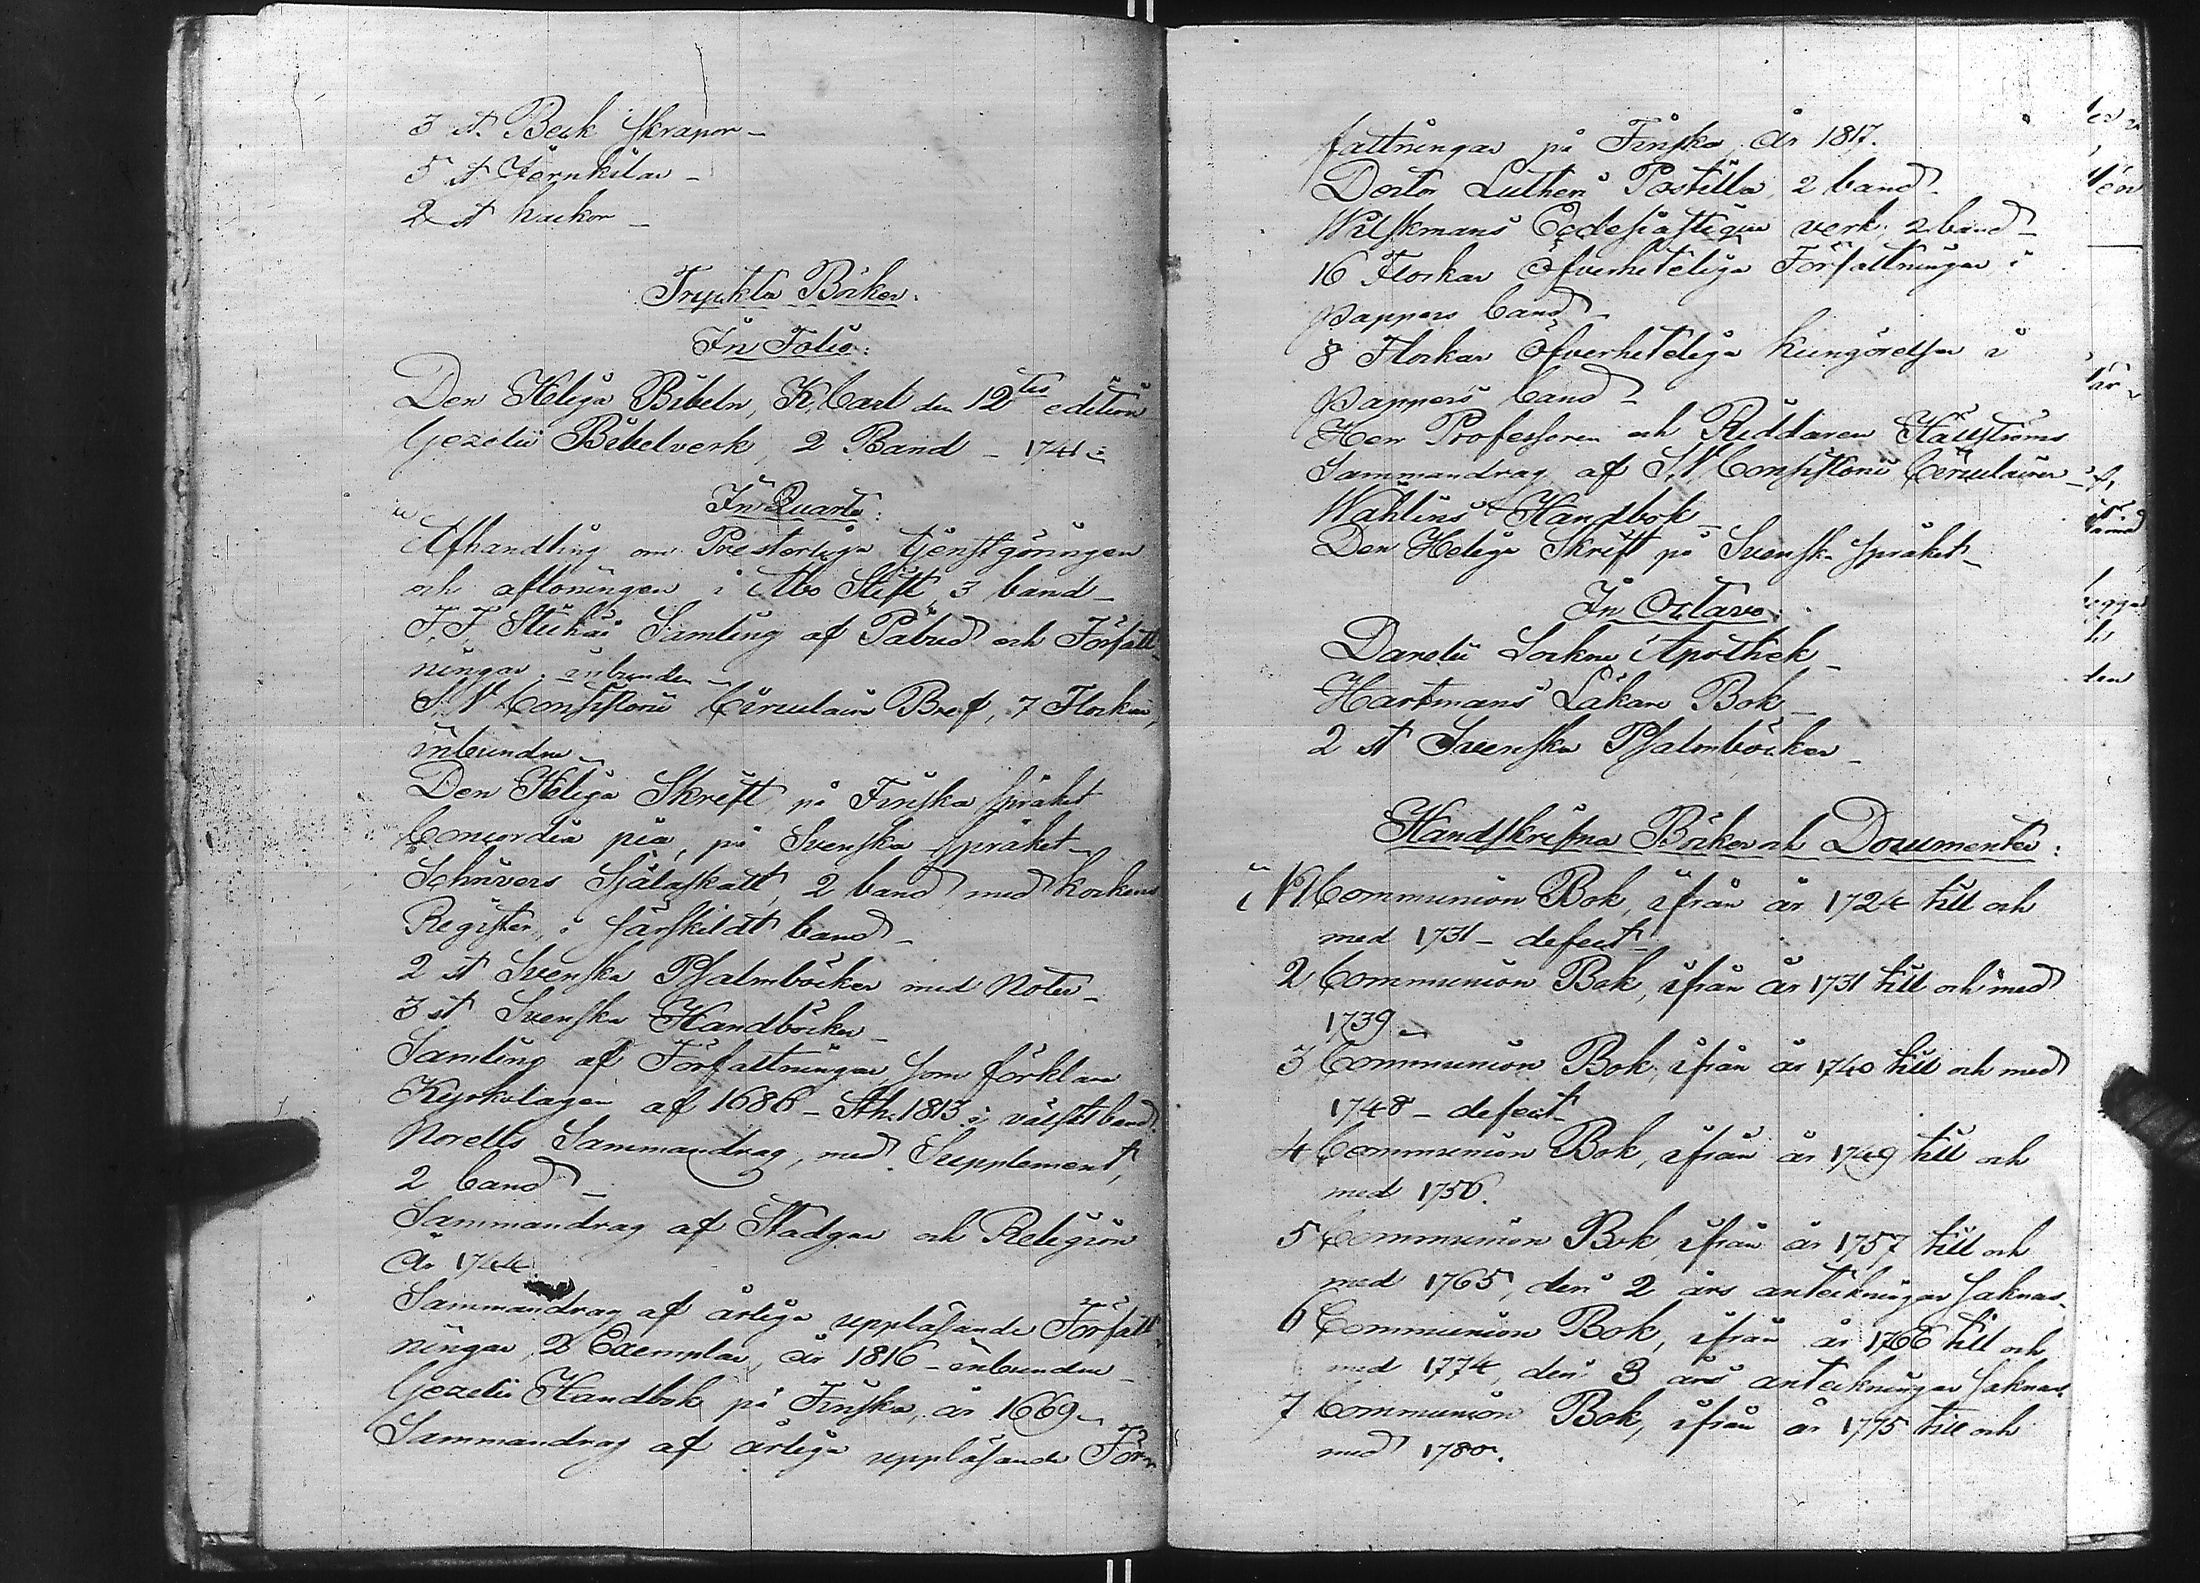 3 st. Beck skrapor –
5 st Jernkilar –
2 st hackor –
Tryckta Böcker:
In Folio:
Den Heliga Bibeln, K. Carl den 12tes edition
Gezelii Bibelverk, 2 Band – 1741 –
In Quarto:
Afhandling om Presterliga tjenstgöringen
och aflöningen i Åbo Stift 3 band –
F. J. Samling af Påbud och Författ-
ningar inbunden –
S. V. Consistorii Circulaire Bref, 7 Flockar,
inbundne –
Den Heliga Skrift, på Finska språket
Concordia pia, på Svenska språket –
Schrivers Själaskatt, 2 band med
Register, i särskildt band –
2 st Svenska Psalmböcker med Noter –
3 st Svenska Handböcker –
Samling af Författningar, som förklara
Kyrkolagen af 1686 – Sth. 1813 i band.
Norells Sammandrag, med Supplement,
2 band –
Sammandrag af Stadgar och Religion
År 1744
Sammandrag af årliga uppläsande Författ-
ningar, 2 Exemplar, år 1816 – inbundne –
Gezelii Handbok på Finska, år 1669 –
Sammandrag af årliga uppläsande För-
fattningar på Finska, År 1817.
Doctor Luthers Postilla, 2 band –
Wilskmans Ecclesiastique verk, 2 band –
16 Flockar Öfverhetliga Författningar i
pappers band –
8 Flockar Öfverhetliga Kungörelser i
pappers band –
Herr Professoren och Riddaren Hällströms
Sammandrag af S. V. Consistorii Circulairer –
Wåhlins Handbok –
Den Heliga Skrift på Svenska språket –
In Octavo:
Darelii Sockne Apothek –
Hartmans Läkare Bok –
2 st Svenska Psalmböcker –
Handskrifna Böcker och Documenter:
No 1 Communion Bok, ifrån år 1724 till och
med 1731 – defect –
2 Communion Bok, ifrån år 1731 till och med
1739 –
3 Communion Bok, ifrån år 1740 till och med
1748 – defect –
4 Communion Bok, ifrån år 1749 till och
med 1756.
5 Communion Bok, ifrån år 1757 till och
med 1765, deri 2 års anteckningar saknas.
6 Communion Bok, ifrån år 1766 till och
med 1774, deri 3 års anteckningar saknas.
7 Communion Bok, ifrån år 1775 till och
med 1780.